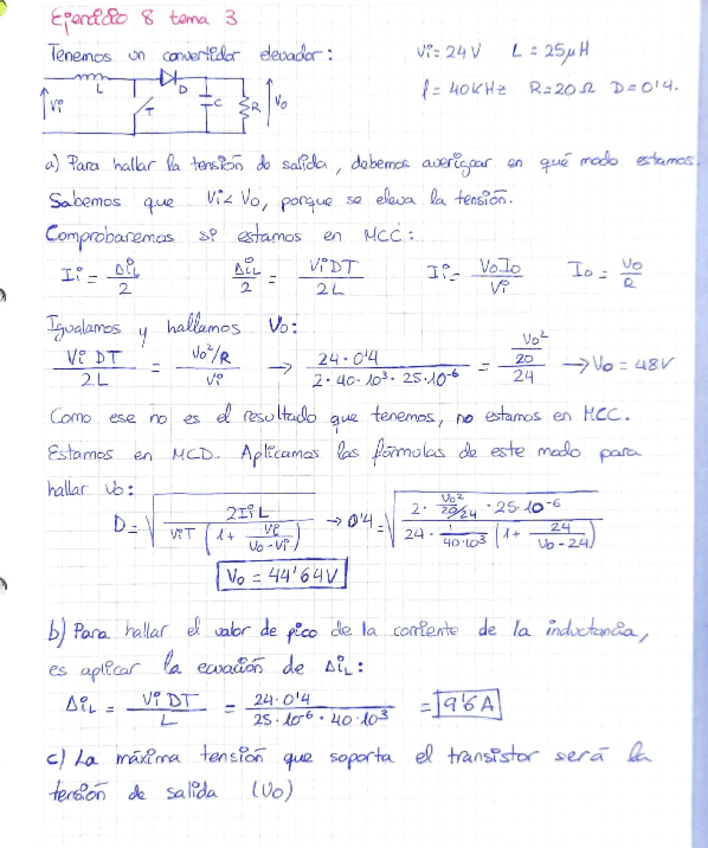 Ejercicio 8 tema 3
Tenemos un convertidor elevador: Vi=24V L=25μH
f=40KHz R=20Ω D=0'4.
Vi L T D C R Vo
a) Para hallar la tensión de salida, debemos averiguar en qué modo estamos.
Sabemos que Vi<Vo, porque se eleva la tensión.
Comprobaremos si estamos en MCC:
Ii = ΔiL/2 ΔiL/2 = ViDT/2L Ii = VoIo/Vi Io = Vo/R
Igualamos y hallamos Vo:
Vi DT/2L = (Vo²/R)/Vi → 24·0'4/(2·40·10³·25·10⁻⁶) = (Vo²/20)/24 → Vo = 48V
Como ese no es el resultado que tenemos, no estamos en MCC.
Estamos en MCD. Aplicamos las fórmulas de este modo para
hallar Vo:
D = √(2IiL/(ViT(1+Vi/(Vo-Vi)))) → 0'4 = √(2·(Vo²/20/24)·25·10⁻⁶/(24·1/(40·10³)(1+24/(Vo-24))))
Vo = 44'64V
b) Para hallar el valor de pico de la corriente de la inductancia,
es aplicar la ecuación de ΔiL:
ΔiL = Vi DT/L = 24·0'4/(25·10⁻⁶·40·10³) = 9'6A
c) La máxima tensión que soporta el transistor será la
tensión de salida (Vo)